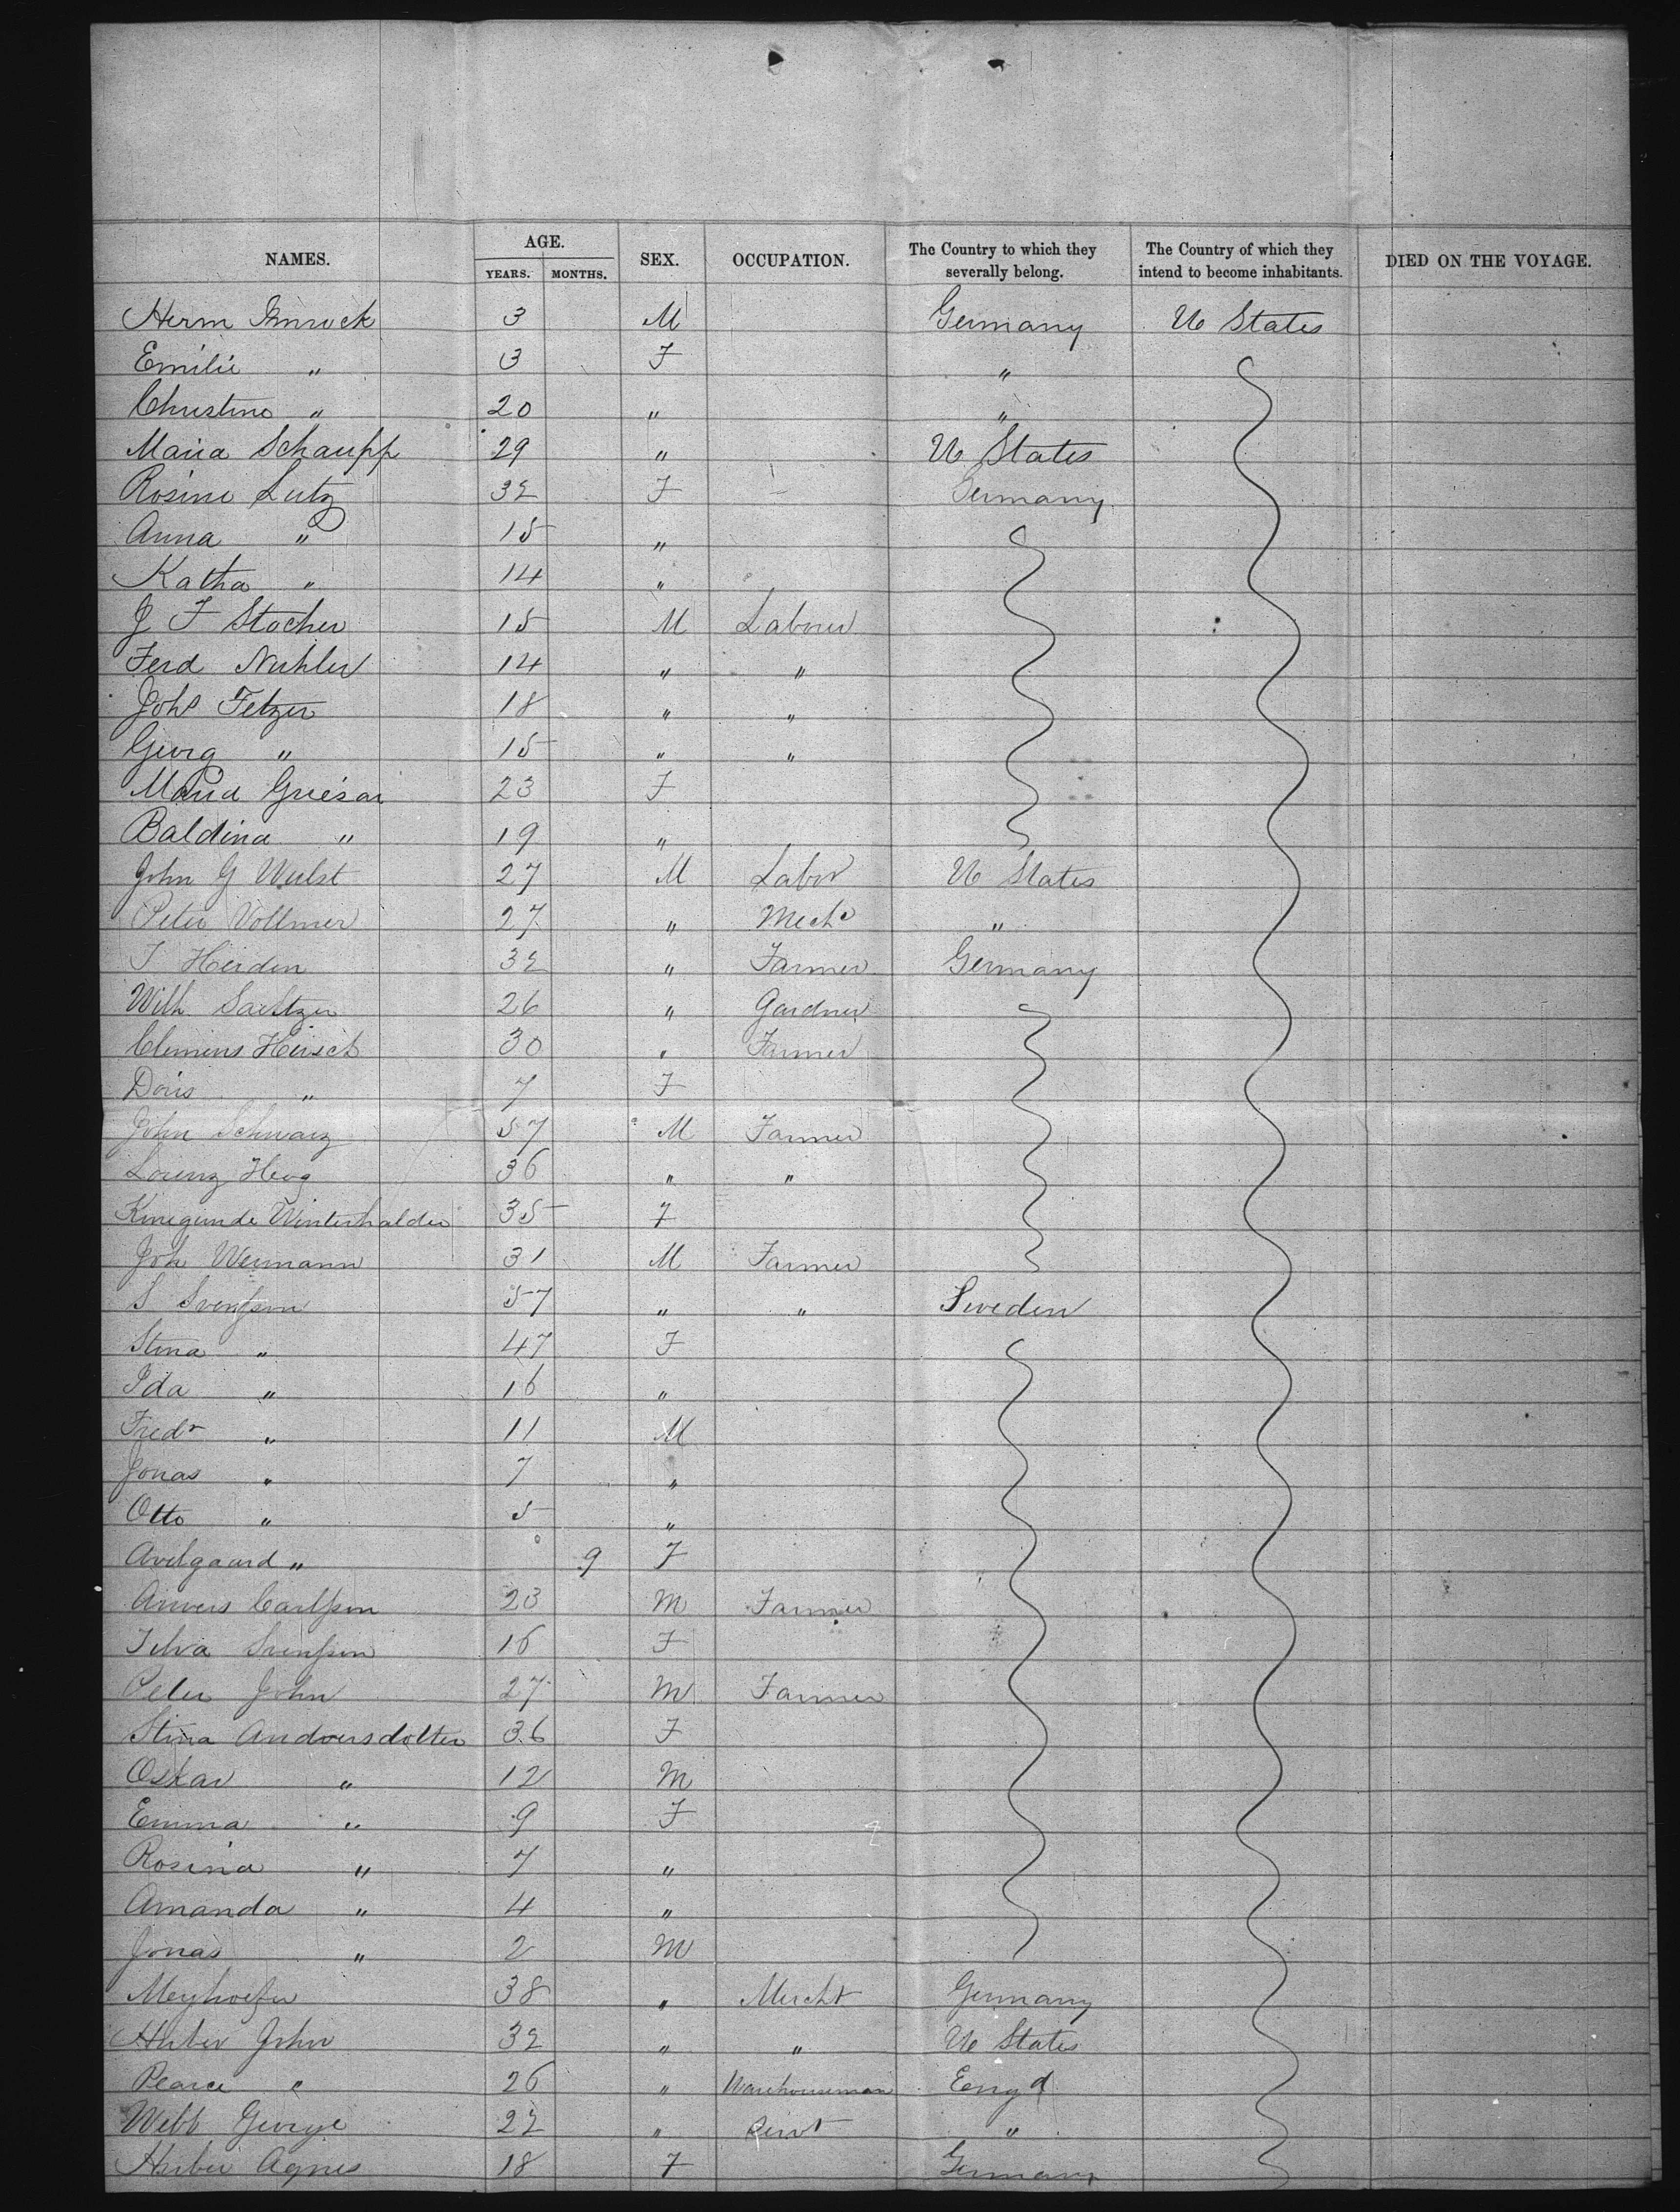 NAMES. AGE. YEARS. MONTHS. SEX. OCCUPATION. The Country to which they severally belong. The Country of which they intend to become inhabitants. DIED ON THE VOYAGE.
Herm 3 M Germany U States
Emilie " 3 F "
Christine " 20 " "
Maria Schaupp 29 " U States
Rosine Lutz 32 F Germany
Anna " 15 "
Katha " 14 "
J F Stocher 15 M Labourer
Ferd 14 " "
Johs Fetzer 18 " "
Georg " 15 " "
Maria Griesar 23 F
Baldina " 19 "
John G Wulst 27 M Labor U States
Peter Vollmer 27 " Mechc "
J Heiden 32 " Farmer Germany
Wilh 26 " Gardner
Clemens Heisch 30 " Farmer
Doris " 7 F
John Schwarz 57 M Farmer
Lorenz Herg 36 " "
Kunegunde Winterhalder 35 F
Joh Weimann 31 M Farmer
S Svensson 57 " " Sweden
Stina " 47 F
Ida " 16 "
Fredr " 11 M
Jonas " 7 "
Otto " 5 "
Avelgaard " 9 F
Anvers Carlsson 23 M Farmer
Svensson 16 F
Peter John 27 M Farmer
Stina Andversdotter 36 F
Oskar " 12 M
Emma " 9 F
Rosina " 7 "
Amanda " 4 "
Jonas " 2 M
Meyhoefer 38 " Mercht Germany
Huber John 32 " " U States
Pearce " 26 " Warehouseman Engd
Webb George 22 " Servt "
Huber Agnes 18 F Germany